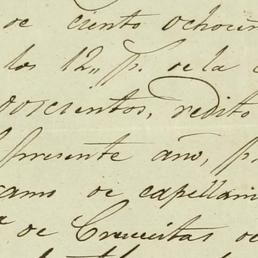 de ciento ochoci
los 12,, p. de la
doscientos, redito
presente año, p.
de capellani
de Crucitas de